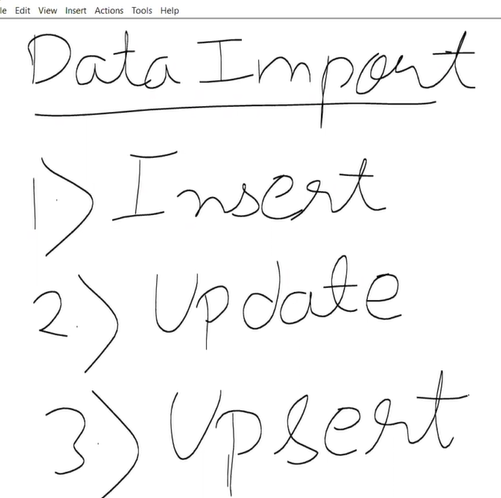 Edit View Insert Actions Tools Help
Data Import
1) Insert
2) Update
3) Upsert